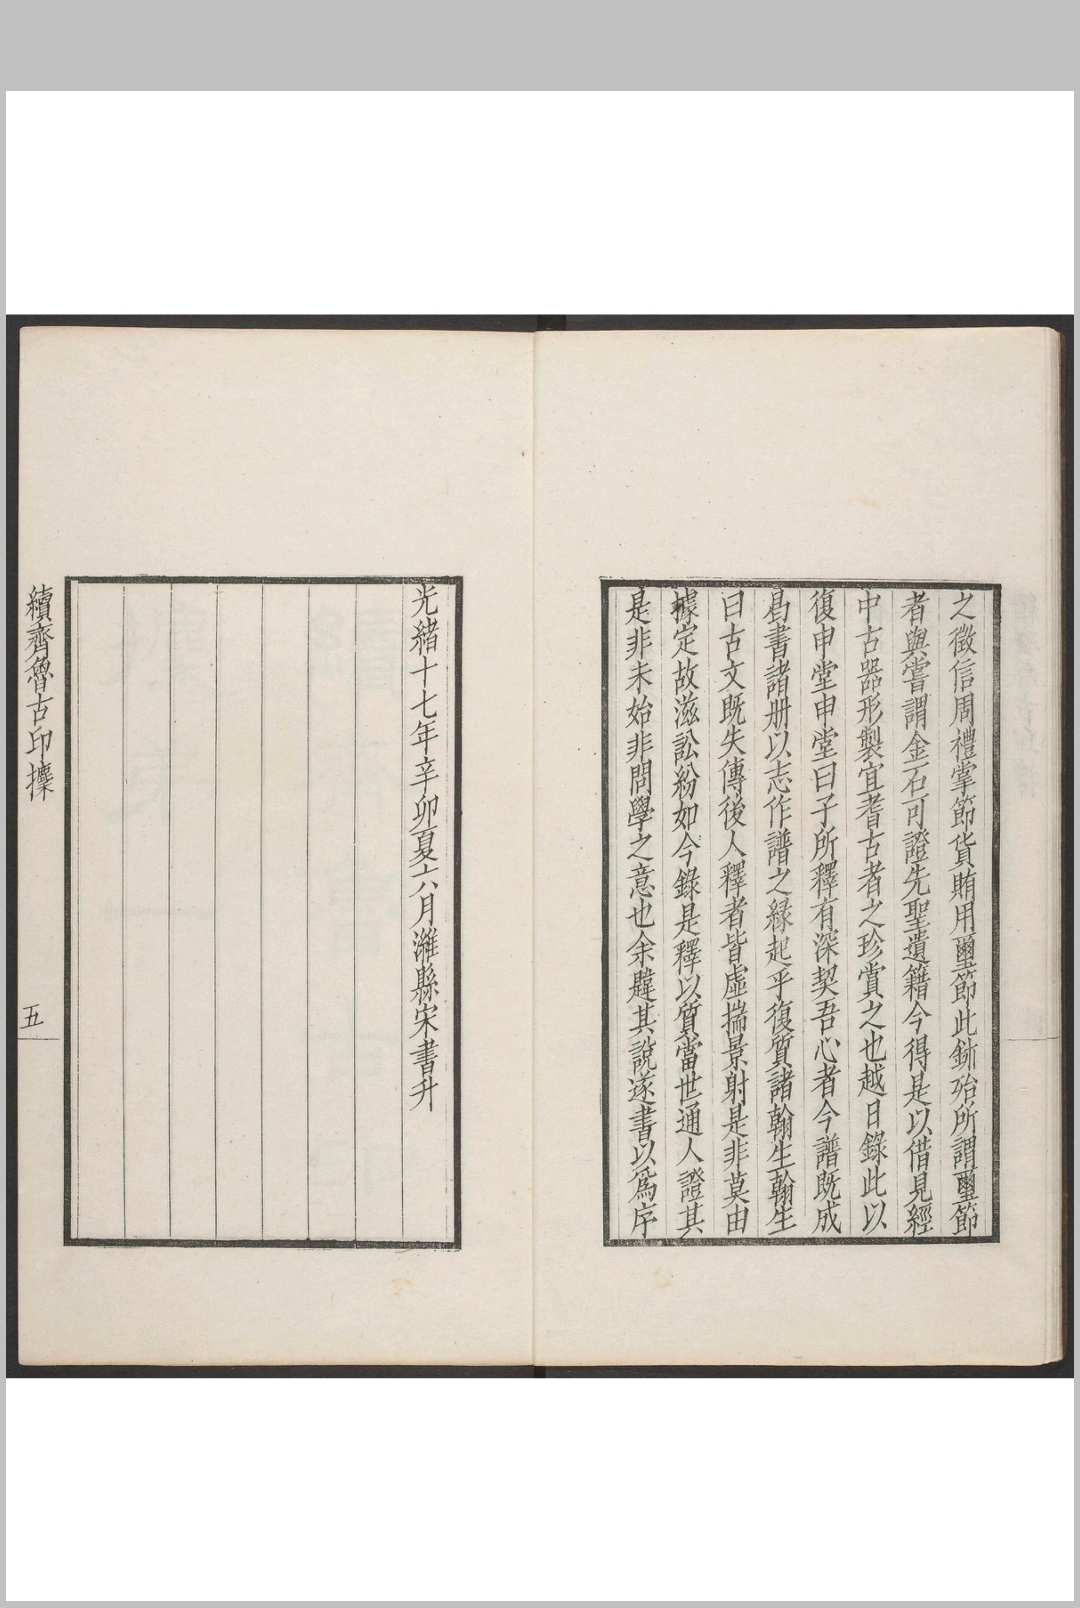 之徵信周禮掌節貨賄用璽節此鉨殆所謂璽節
者與嘗謂金石可證先聖遺籍今得是以借見經
中古器形製宜耆古者之珍賞之也越日錄此以
復申堂申堂曰子所釋有深契吾心者今譜既成
曷書諸册以志作譜之緣起乎復質諸翰生翰生
曰古文既失傳後人釋者皆虛揣景射是非莫由
據定故滋訟紛如今錄是釋以質當世通人證其
是非未始非問學之意也余韙其說遂書以為序
光緒十七年辛卯夏六月濰縣宋書升
續齊魯古印攈
五